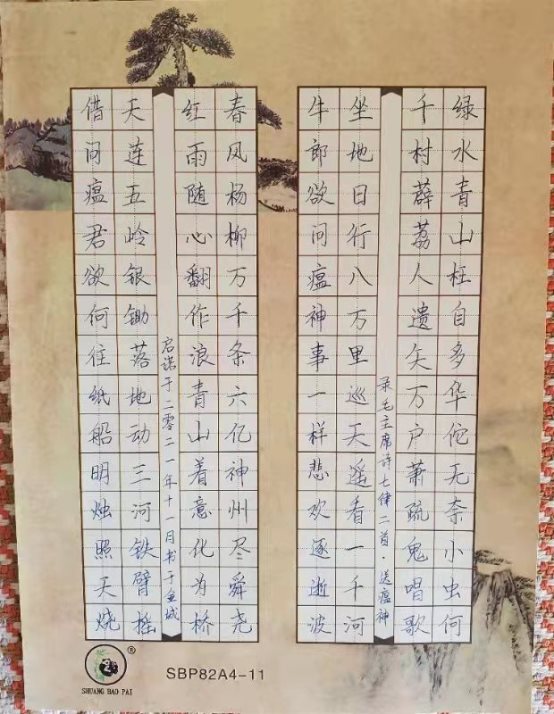 绿水青山枉自多华佗无奈小虫何
千村薜荔人遗矢万户萧疏鬼唱歌
录毛主席诗七律二首·送瘟神
坐地日行八万里巡天遥看一千河
牛郎欲问瘟神事一样悲欢逐逝波
春风杨柳万千条六亿神州尽舜尧
红雨随心翻作浪青山着意化为桥
于二零二一年十一月书于城
天连五岭银锄落地动三河铁臂摇
借问瘟君欲何往纸船明烛照天烧
®
SHUANG BAO PAI
SBP82A4-11